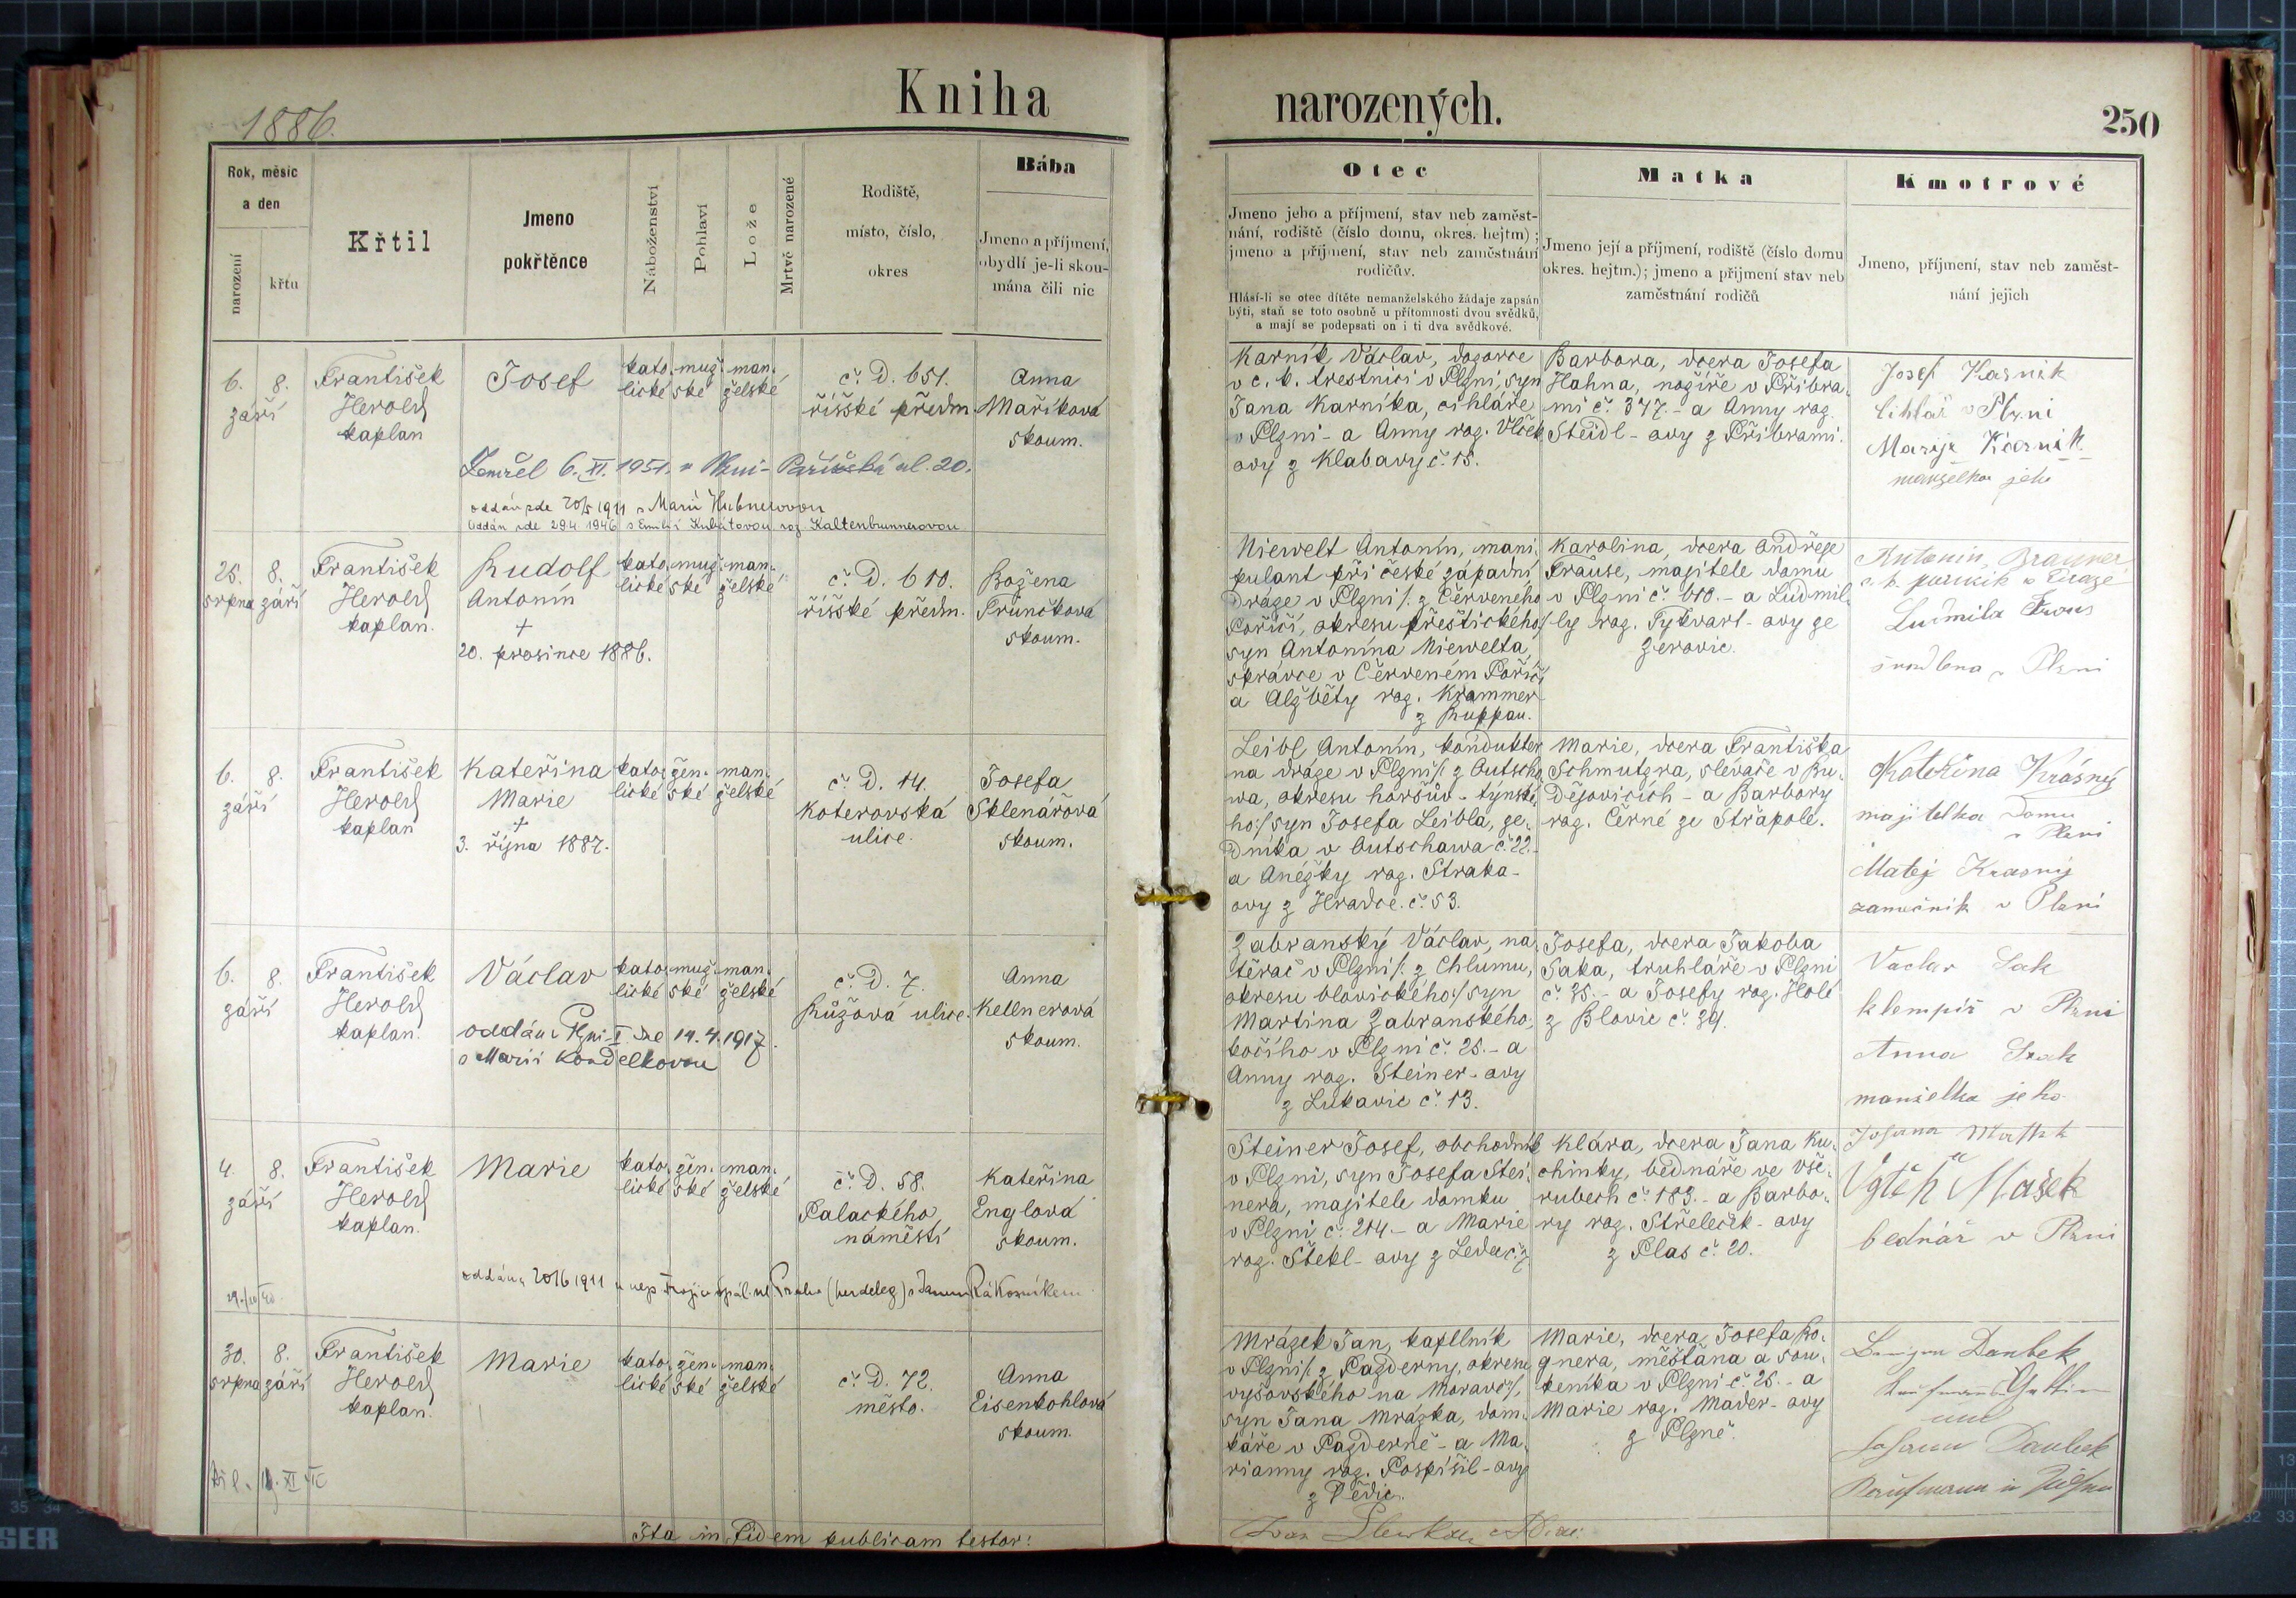 1886.
Kniha
narozených.
250
Rok, měsíc
a den
narození
křtu
Křtil
Jmeno
pokřtěnce
Náboženství
Pohlaví
Lože
Mrtvě narozené
Rodiště,
místo, číslo,
okres
Bába
Jmeno a příjmení,
obydlí je-li skou-
mána čili nic
Otec
Jmeno jeho a příjmení, stav neb zaměst-
nání, rodiště (číslo domu, okres. hejtm);
jmeno a příjmení, stav neb zaměstnání
rodičův.
Hlásí-li se otec dítěte nemanželského žádaje zapsán
býti, staň se toto osobně u přítomnosti dvou svědků,
a mají se podepsati on i ti dva svědkové.
Matka
Jmeno její a příjmení, rodiště (číslo domu
okres. hejtm.); jmeno a příjmení stav neb
zaměstnání rodičů
Kmotrové
Jmeno, příjmení, stav neb zaměst-
nání jejich
6. 8.
září
František
Herold
kaplan
Josef
kato- muž- man-
lické ské želské
č. D. 651.
říšské předm.
Anna
Maříková
skoum.
Zemřel 6. XI. 1951. v Plzni - Pařížská ul. 20.
oddán zde 20/5 1911 s Marií Hubnerovou
Oddán zde 29.4. 1946 s Emilií Kubátovou roz. Kaltenbrunnerovou
Karník Václav, dozorce
v c. k. trestnici v Plzni, syn
Jana Karníka, cihláře
v Plzni - a Anny roz. Vlček
ovy z Klabavy č. 15.
Barbora, dcera Josefa
Hahna, nožíře v Příbra-
mi č. 347. - a Anny roz.
Steidl - ovy z Příbrami.
Josef Karnik
Cihlář v Plzni
Marije Karnik
manželka jeho
25. 8.
srpna září
František
Herold
kaplan.
Rudolf
Antonín
+
20. prosince 1886.
kato- muž- man-
lické ské želské
č. D. 610.
říšské předm.
Božena
Průnčková
skoum.
Niewelt Antonín, mani-
pulant při české západní
dráze v Plzni /: z Červeného
Poříčí, okresu přeštického :/
syn Antonína Niewelta,
správce v Červeném Poříčí
a Alžběty roz. Krammer
z Ruppau.
Karolina, dcera Ondřeje
Frause, majitele domu
v Plzni č. 610. - a Ludmil-
ly roz. Tykvart - ovy ze
Žerovic.
Antonin, Brauner
Ludmila Frous
v Plzni
6. 8.
září
František
Herold
kaplan
Kateřina
Marie
+
3. října 1887.
kato- žen- man-
lické ské želské
č. D. 14.
Koterovská
ulice.
Josefa
Sklenářová
skoum.
Leibl Antonín, kondukter
na dráze v Plzni /: z Outscha-
wa, okresu horšův - týnské-
ho :/ syn Josefa Leibla, ze-
dníka v Outschawa č. 22.
a Anežky roz. Straka -
ovy z Hradce. č. 53.
Marie, dcera Františka
Schmutzra, slévače v Ru-
dějovicích - a Barbory
roz. Černé ze Střapole.
Kateřina Krásný
majitelka domu
v Plzni
Matěj Krasný
zamečnik v Plzni
6. 8.
září
František
Herold
kaplan.
Václav
kato- muž- man-
lické ské želské
č. D. 7.
Růžová ulice.
Anna
Kellnerová
skoum.
oddán v Plzni - I dne 14. 4. 1917.
s Marií Kondelkovou
Zabranský Václav, na-
těrač v Plzni /: z Chlumu,
okresu blovického :/ syn
Martina Zabranského,
kočího v Plzni č. 25. - a
Anny roz. Steiner - ovy
z Lukavic č. 13.
Josefa, dcera Jakoba
Saka, truhláře v Plzni
č. 35. - a Josefy roz. Holé
z Blovic č. 39.
Vaclav Sak
klempíř v Plzni
Anna Sak
manželka jeho
4. 8.
září
František
Herold
kaplan.
Marie
kato- žen- man-
lické ské želské
č. D. 58.
Palackého
náměstí
Kateřina
Englová
skoum.
oddána 20/6 1911 u nejs Trojice Spál. ul. Praha (per deleg) s Janem Rákosníkem
Steiner Josef, obchodník
v Plzni, syn Josefa Stei-
nera, majitele domku
v Plzni č. 214 - a Marie
roz. Štekl - ovy z Ledec
Klára, dcera Jana Ku-
chinky, bednáře ve Vše-
rubech č. 183. - a Barbo-
ry roz. Střeleček - ovy
z Plas č. 20.
Vojtěch Mašek
bednář v Plzni
30. 8.
srpna září
František
Herold
kaplan.
Marie
kato- žen- man-
lické ské želské
č. D. 72.
město.
Anna
Eisenkohlová
skoum.
Mrázek Jan, kapellník
v Plzni /: z Pazderny, okresu
vyšovského na Moravě :/,
syn Jana Mrázka, dom-
káře v Pazderně - a Ma-
rianny roz. Pospíšil - ovy
z Dědic.
Marie, dcera Josefa Ro-
gnera, měšťana a sou-
keníka v Plzni č. 25. - a
Marie roz. Mader - ovy
z Plzně.
Daubek
und
Johann Daubek
Kaufmann in Pilsen
Ita in Fidem publicam testor: